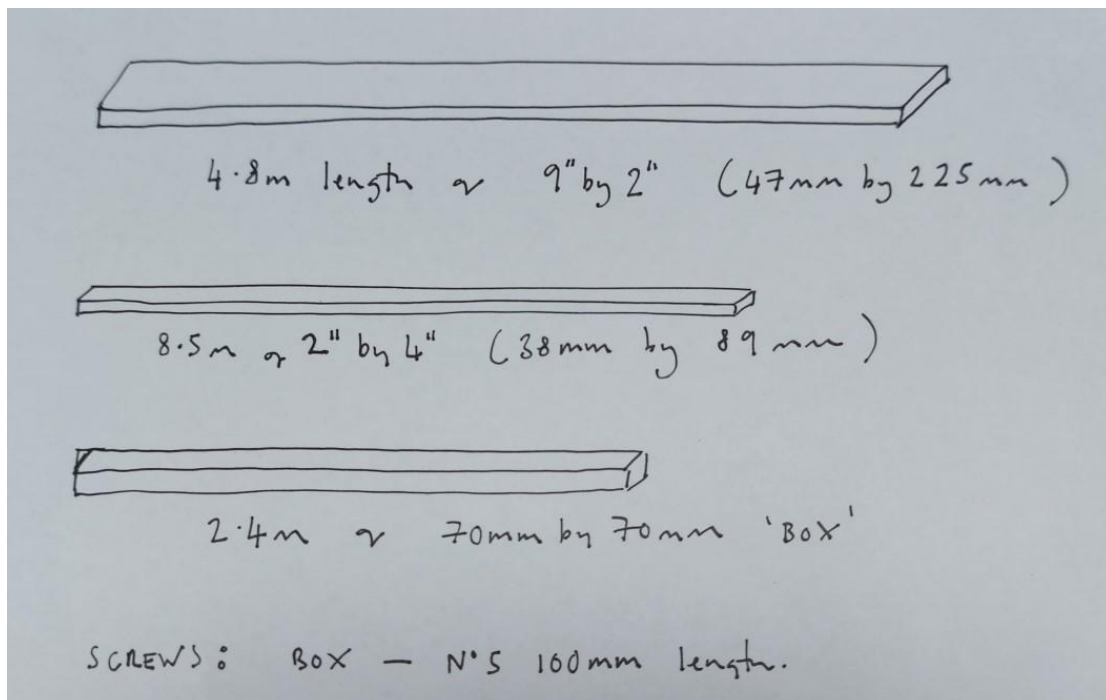 4.8m length of 9" by 2" (47mm by 225mm)
8.5m of 2" by 4" (38mm by 89mm)
2.4m of 70mm by 70mm 'BOX'
SCREWS: BOX — N°5 100mm length.